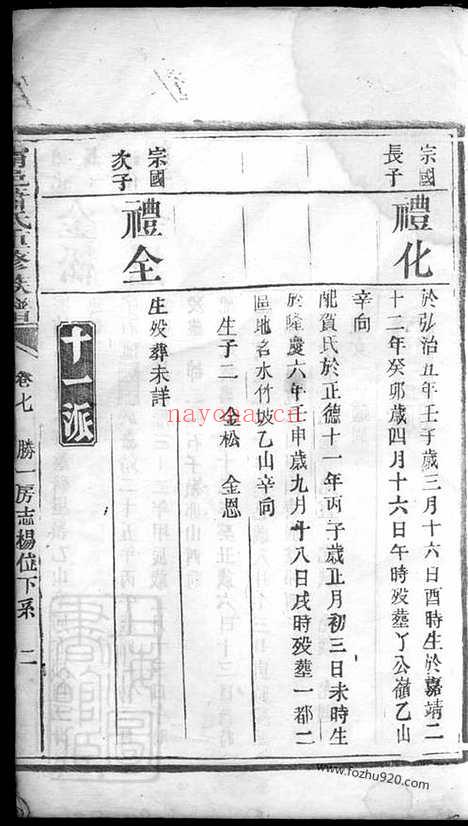 宗國
長子
禮化
於弘治五年壬子歲三月十六日酉時生於嘉靖二
十二年癸卯歲四月十六日午時歿葬丫公嶺乙山
辛向
配賀氏於正德十一年丙子歲正月初三日未時生
於隆慶六年壬申歲九月十八日戌時歿葬一都二
區地名水竹坡乙山辛向
生子二 金松 金恩
宗國
次子
禮全
生歿葬未詳
十一派
氏重修族譜
卷七 勝一房志楊位下系 二
nayona.cn
www.fozhu920.com